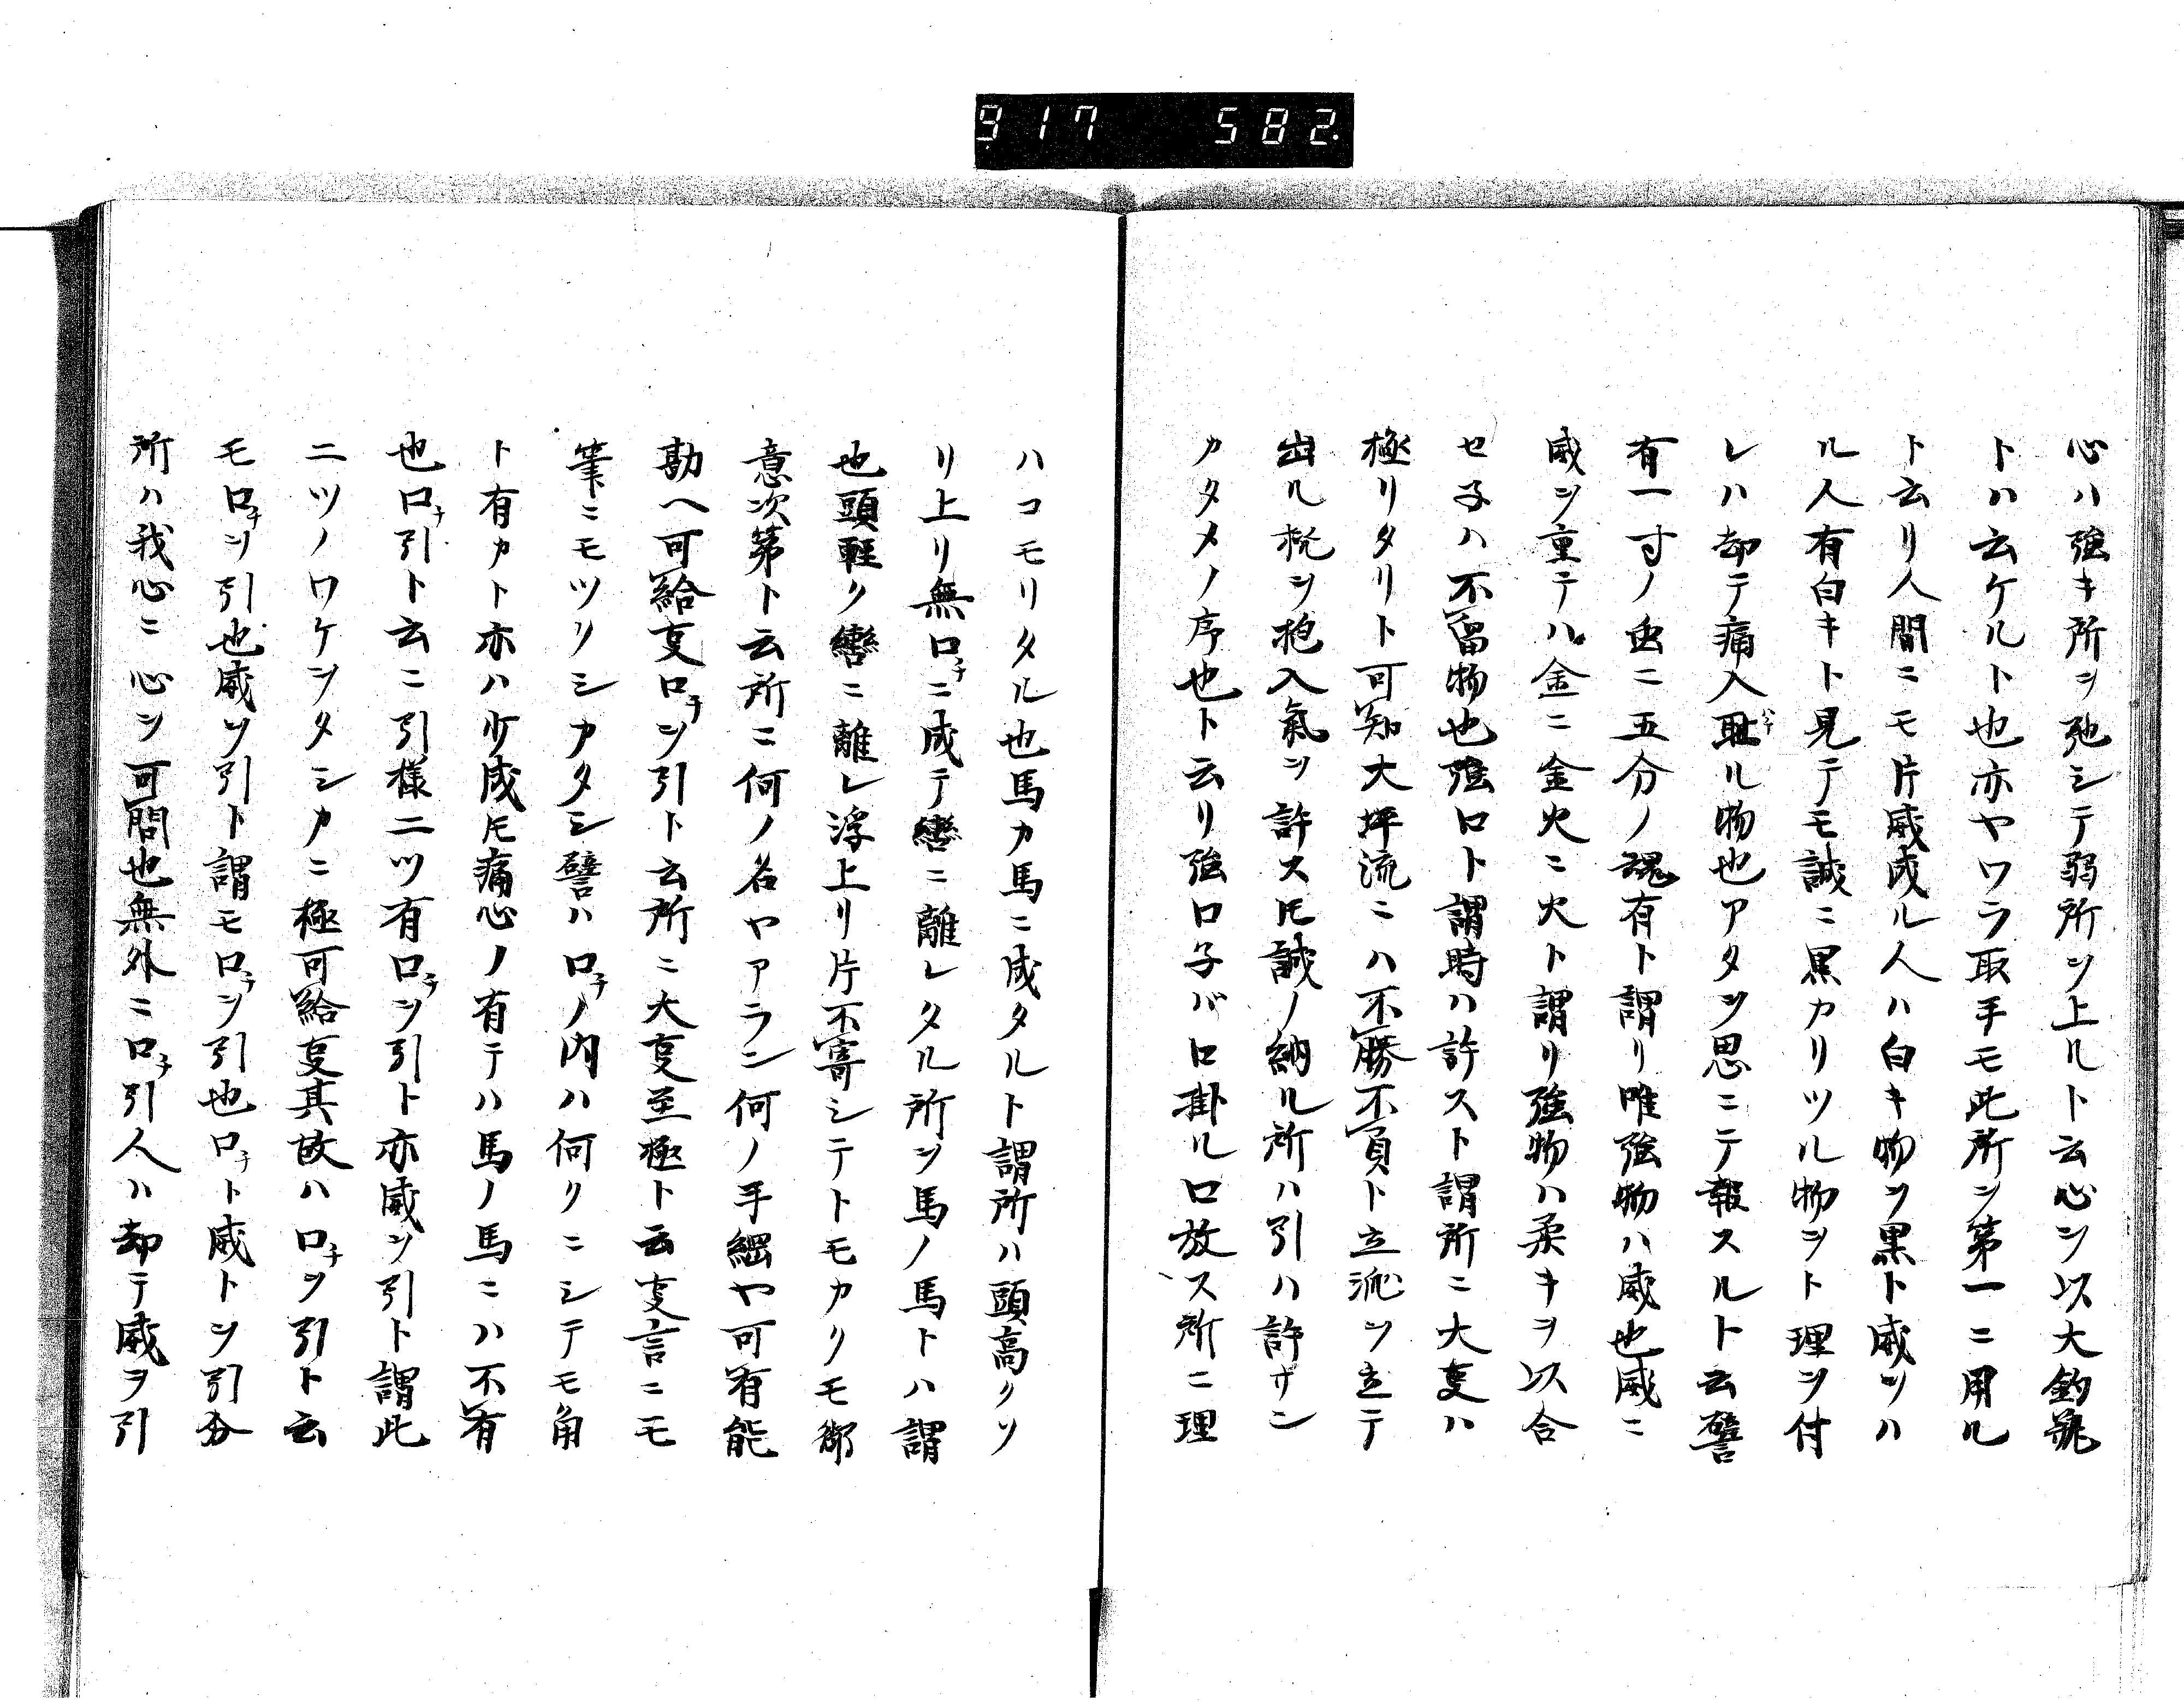 917 582
心ハ強キ所ヲ弛シテ弱所ヲ上ルト云心ヲ以大釣
トハ云ケルト也亦ヤワラ取手モ此所ヲ第一ニ用ル
ト云リ人間ニモ片威成ル人ハ白キ物ヲ黒ト威ヲハ
ル人有白キト見テモ誠ニ黒カリツル物ヲト理ヲ付
レハ却テ痛入耻ル物也アタヲ思ニテ報スルト云譬
有一寸ノ虫ニ五分ノ魂有ト謂リ唯強物ハ威也威ニ
威ヲ重テハ金ニ金火ニ火ト謂リ強物ハ柔キヲ以合
セ子ハ不留物也強口ト謂時ハ許スト謂所ニ大叓ハ
極リタリト可知大坪流ニハ不勝不負ト立派ヲ立テ
出ル杭ヲ抱入氣ヲ許ス圧誠ノ納ル所ハ引ハ許サン
カタメノ序也ト云リ強口子バ口掛ル口放ス所ニ理
ハコモリタル也馬カ馬ニ成タルト謂所ハ頭高クソ
リ上リ無口チニ成テ轡ニ離レタル所ヲ馬ノ馬トハ謂
也頭軽ク轡ニ離レ浮上リ片不寄シテトモカクモ御
意次第ト云所ニ何ノ名ヤアラン何ノ手綱ヤ可有能
勘ヘ可給叓口チヲ引ト云所ニ大叓至極ト云叓言ニモ
筆ニモツクシカタシ譬ハ口チノ内ハ何クニシテモ角
ト有カト亦ハ少成圧痛心ノ有テハ馬ノ馬ニハ不有
也口チ引ト云ニ引様二ツ有口チヲ引ト亦威ヲ引ト謂此
二ツノワケヲタシカニ極可給叓其故ハ口チヲ引ト云
モ口チヲ引也威ヲ引ト謂モ口チヲ引也口チト威トヲ引分
所ハ我心ニ心ヲ可問也無外ニ口チ引人ハ却テ威ヲ引